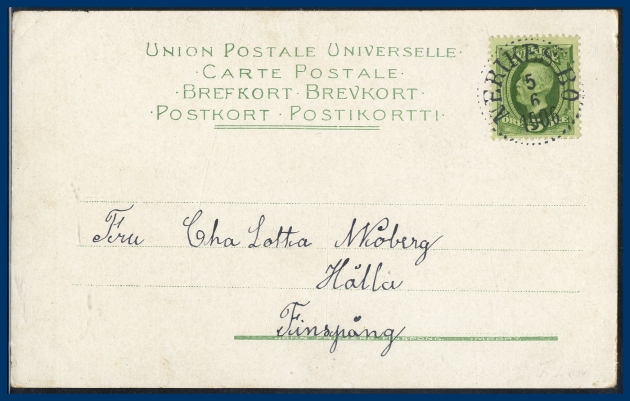 UNION POSTALE UNIVERSELLE·
·CARTE POSTALE·
·BREFKORT·BREVKORT·
·POSTKORT·POSTIKORTTI·
NERIKES-BO
5
6
1906
Fru Cha Lotta Moberg
Hälla
Finspång
IMPORT.